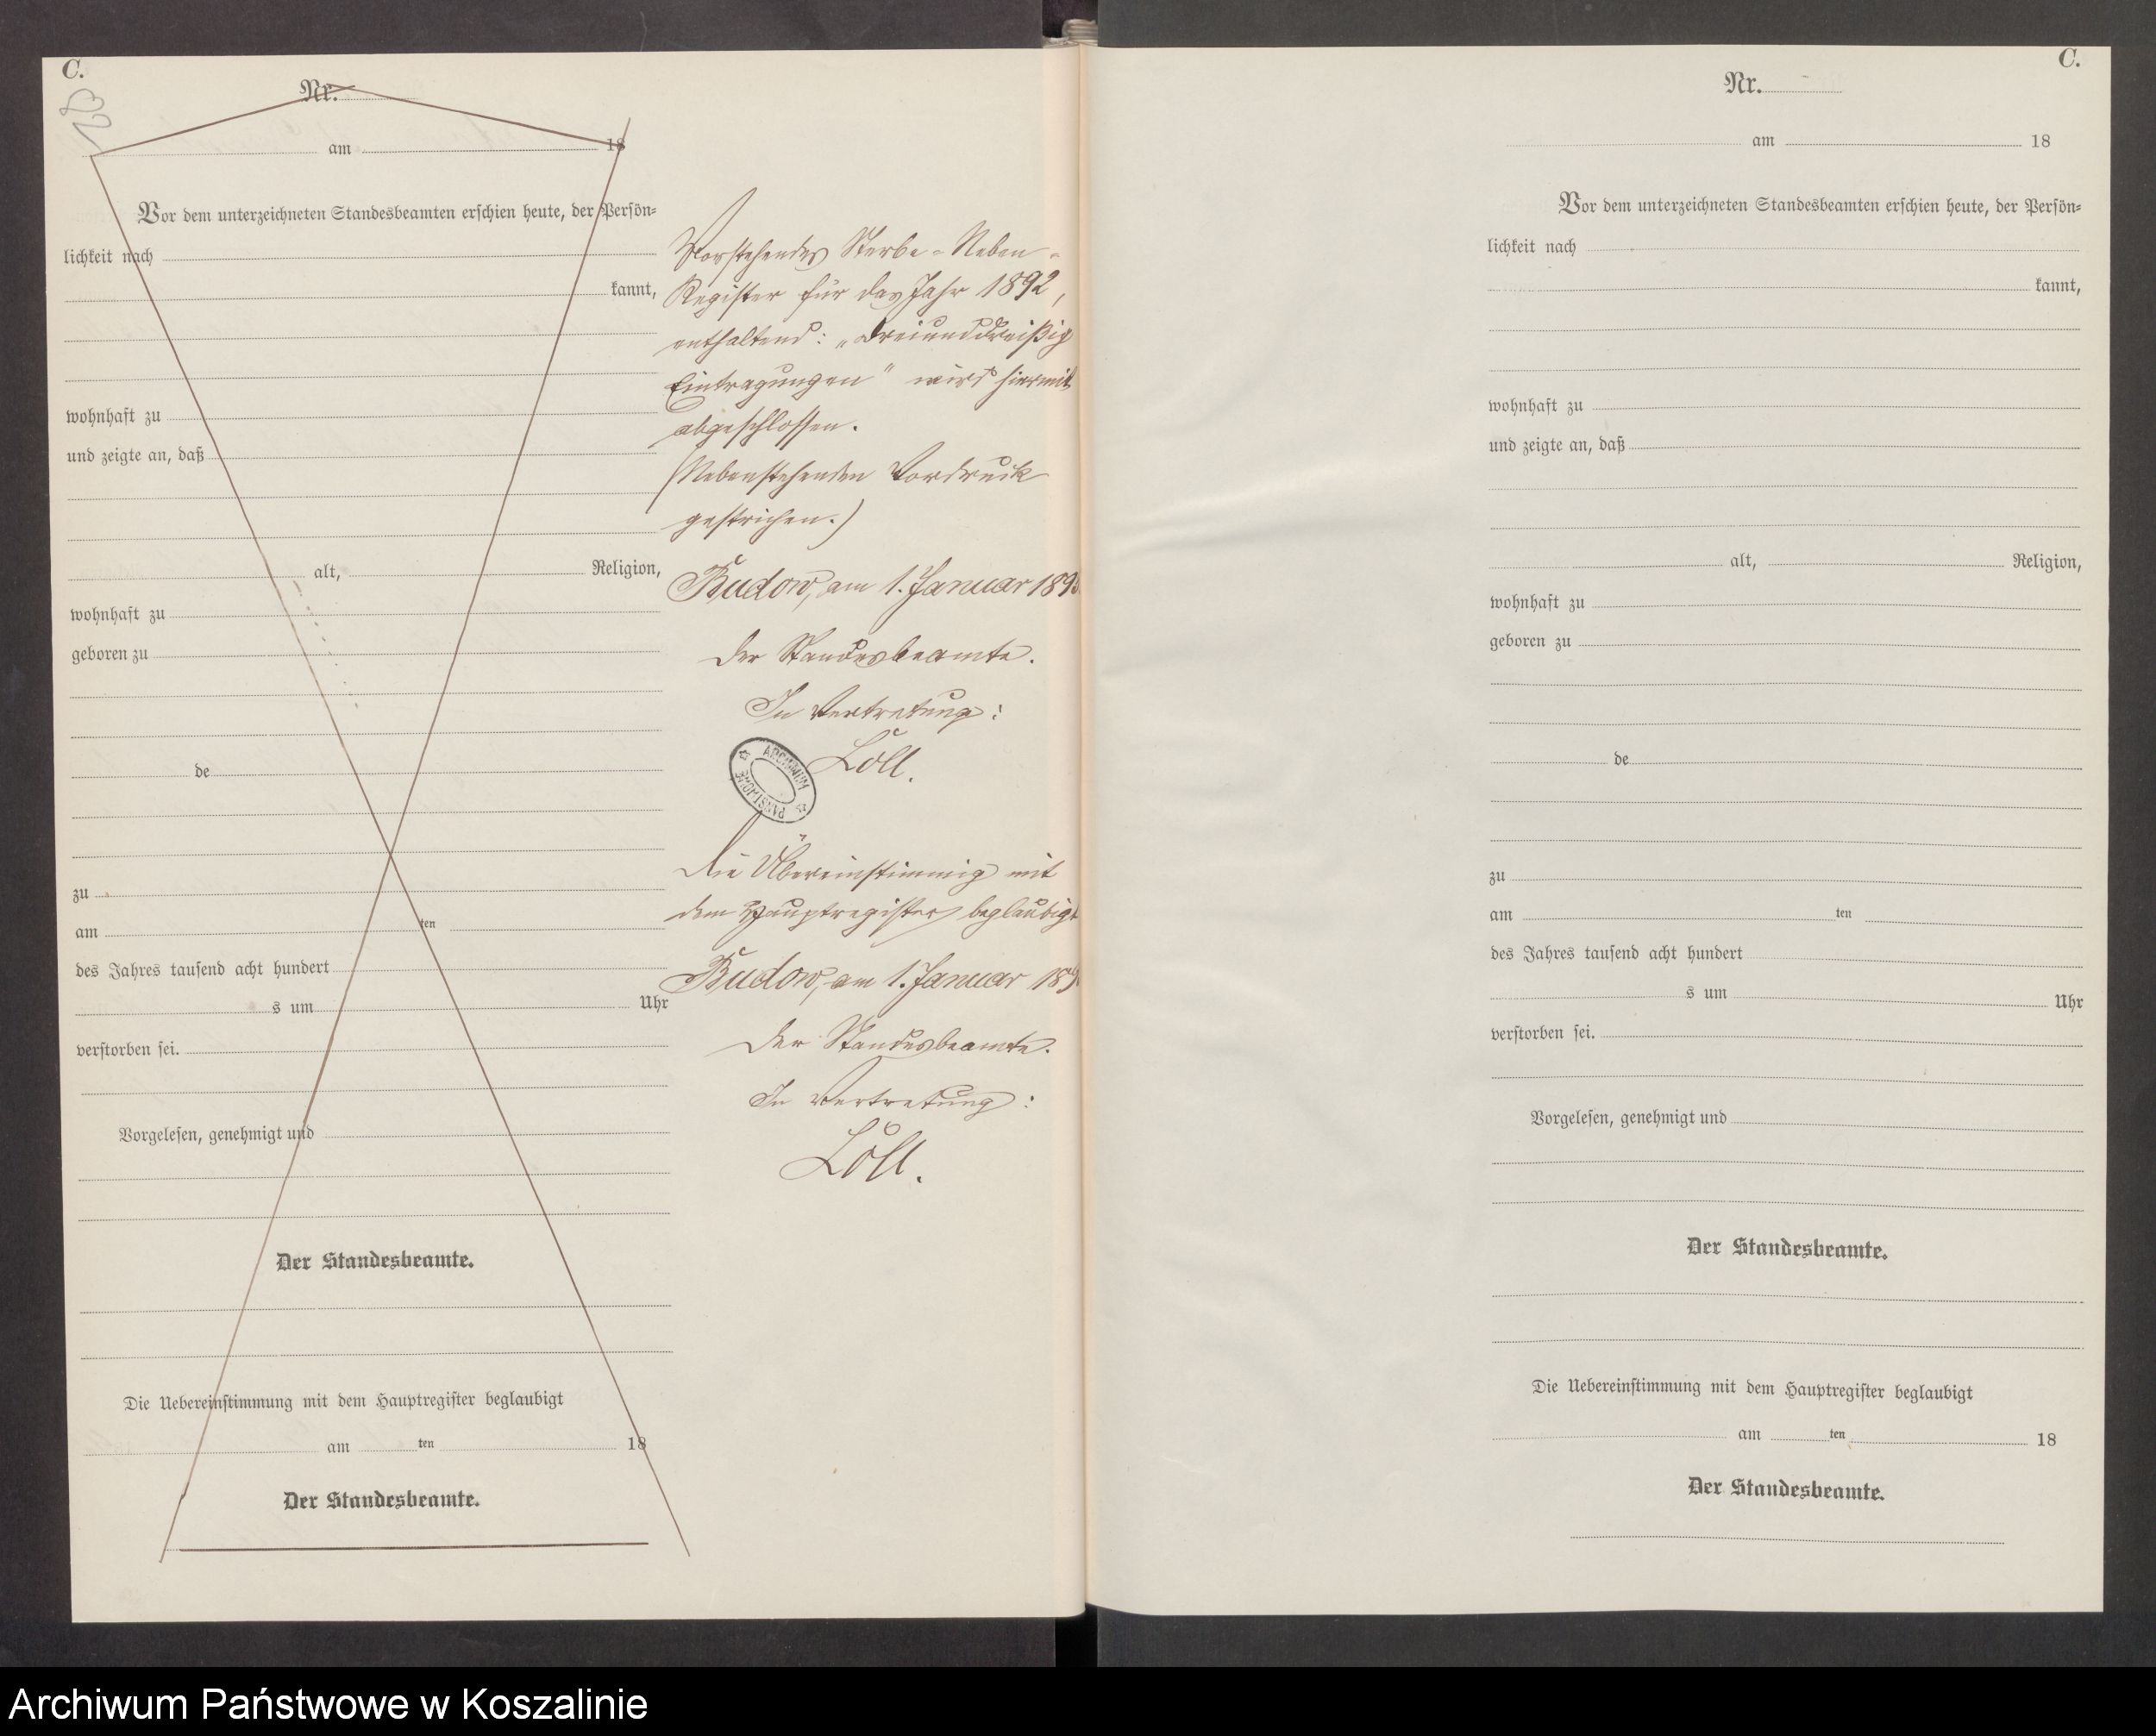 C.
Nr.
am 18
Vor dem unterzeichneten Standesbeamten erschien heute, der Persön-
lichkeit nach
kannt,
wohnhaft zu
und zeigte an, daß
alt, Religion,
wohnhaft zu
geboren zu
de
zu
am ten
des Jahres tausend acht hundert
s um Uhr
verstorben sei.
Vorgelesen, genehmigt und
Der Standesbeamte.
Die Uebereinstimmung mit dem Hauptregister beglaubigt
am ten 18
Der Standesbeamte.
Vorstehendes Sterbe-Neben-
Register für das Jahr 1892,
enthaltend: „Dreiunddreißig
Eintragungen" wird hiermit
abgeschlossen.
(Nebenstehenden Vordruck
gestrichen.)
Budow, am 1. Januar
Der Standesbeamte.
In Vertretung:
Löll.
ARCHIWUM PAŃSTWOWE
Die Übereinstimmig mit
dem Hauptregister beglaubigt
Budow, am 1. Januar
Der Standesbeamte.
In Vertretung:
Löll.
C.
Nr.
am 18
Vor dem unterzeichneten Standesbeamten erschien heute, der Persön-
lichkeit nach
kannt,
wohnhaft zu
und zeigte an, daß
alt, Religion,
wohnhaft zu
geboren zu
de
zu
am ten
des Jahres tausend acht hundert
s um Uhr
verstorben sei.
Vorgelesen, genehmigt und
Der Standesbeamte.
Die Uebereinstimmung mit dem Hauptregister beglaubigt
am ten 18
Der Standesbeamte.
Archiwum Państwowe w Koszalinie